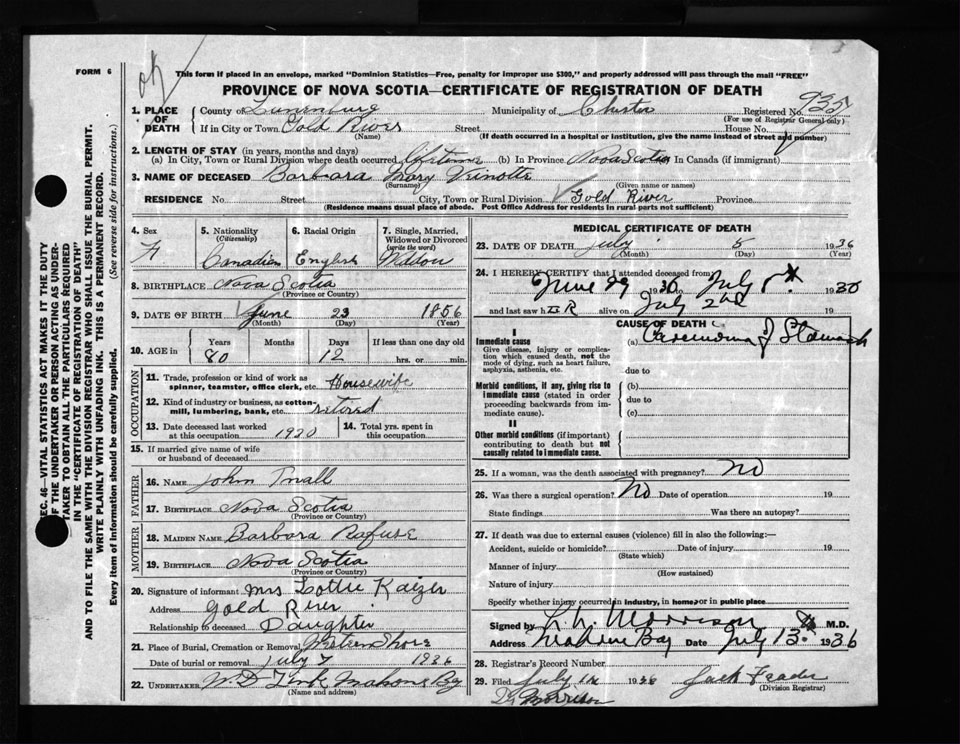 ok
FORM 6
This form if placed in an envelope, marked "Dominion Statistics—Free, penalty for improper use $300," and properly addressed will pass through the mail "FREE"
PROVINCE OF NOVA SCOTIA—CERTIFICATE OF REGISTRATION OF DEATH
SEC. 46—VITAL STATISTICS ACT MAKES IT THE DUTY
OF THE UNDERTAKER OR PERSON ACTING AS UNDER-
TAKER TO OBTAIN ALL THE PARTICULARS REQUIRED
IN THE "CERTIFICATE OF REGISTRATION OF DEATH"
AND TO FILE THE SAME WITH THE DIVISION REGISTRAR WHO SHALL ISSUE THE BURIAL PERMIT.
WRITE PLAINLY WITH UNFADING INK. THIS IS A PERMANENT RECORD.
Every item of information should be carefully supplied. (See reverse side for instructions.)
1. PLACE OF DEATH County of Lunenburg Municipality of Chester Registered No. 935
(For use of Registrar General only)
If in City or Town Gold River Street House No.
(Name) (If death occurred in a hospital or institution, give the name instead of street and number)
2. LENGTH OF STAY (in years, months and days)
(a) In City, Town or Rural Division where death occurred lifetime (b) In Province Nova Scotia In Canada (if immigrant)
3. NAME OF DECEASED Barbara Mary Veinotte
(Surname) (Given name or names)
RESIDENCE No. Street City, Town or Rural Division Gold River Province
(Residence means usual place of abode. Post Office Address for residents in rural parts not sufficient)
4. Sex F
5. Nationality (Citizenship) Canadian
6. Racial Origin English
7. Single, Married, Widowed or Divorced (write the word) Widow
8. BIRTHPLACE Nova Scotia
(Province or Country)
9. DATE OF BIRTH June 23 1856
(Month) (Day) (Year)
10. AGE in Years Months Days If less than one day old
80 12 hrs. or min.
OCCUPATION
11. Trade, profession or kind of work as spinner, teamster, office clerk, etc. Housewife
12. Kind of industry or business, as cotton-mill, lumbering, bank, etc. retired
13. Date deceased last worked at this occupation 1930
14. Total yrs. spent in this occupation
15. If married give name of wife or husband of deceased
FATHER
16. NAME John
17. BIRTHPLACE Nova Scotia
(Province or Country)
MOTHER
18. MAIDEN NAME Barbara Rafuse
19. BIRTHPLACE Nova Scotia
(Province or Country)
20. Signature of informant Mrs Lottie Kaizer
Address Gold River
Relationship to deceased Daughter
21. Place of Burial, Cremation or Removal Western Shore
Date of burial or removal July 7 1936
22. UNDERTAKER W.D. Mahone Bay
(Name and address)
MEDICAL CERTIFICATE OF DEATH
23. DATE OF DEATH July 5 1936
(Month) (Day) (Year)
24. I HEREBY CERTIFY that I attended deceased from
June 29 1930 July 5th 1930
and last saw hER alive on July 2nd 19
CAUSE OF DEATH
I
Immediate cause
Give disease, injury or complication which caused death, not the mode of dying, such as heart failure, asphyxia, asthenia, etc.
(a) Carcinoma of Stomach
due to
Morbid conditions, if any, giving rise to immediate cause (stated in order proceeding backwards from immediate cause).
(b)
due to
(c)
II
Other morbid conditions (if important) contributing to death but not causally related to immediate cause.
25. If a woman, was the death associated with pregnancy? No
26. Was there a surgical operation? No Date of operation 19
State findings Was there an autopsy?
27. If death was due to external causes (violence) fill in also the following:—
Accident, suicide or homicide? Date of injury 19
(State which)
Manner of injury
(How sustained)
Nature of injury
Specify whether injury occurred in industry, in home, or in public place
Signed by Morrison M.D.
Address Mahone Bay Date July 13 1936
28. Registrar's Record Number
29. Filed July 1936 Jack
(Division Registrar)
Morrison